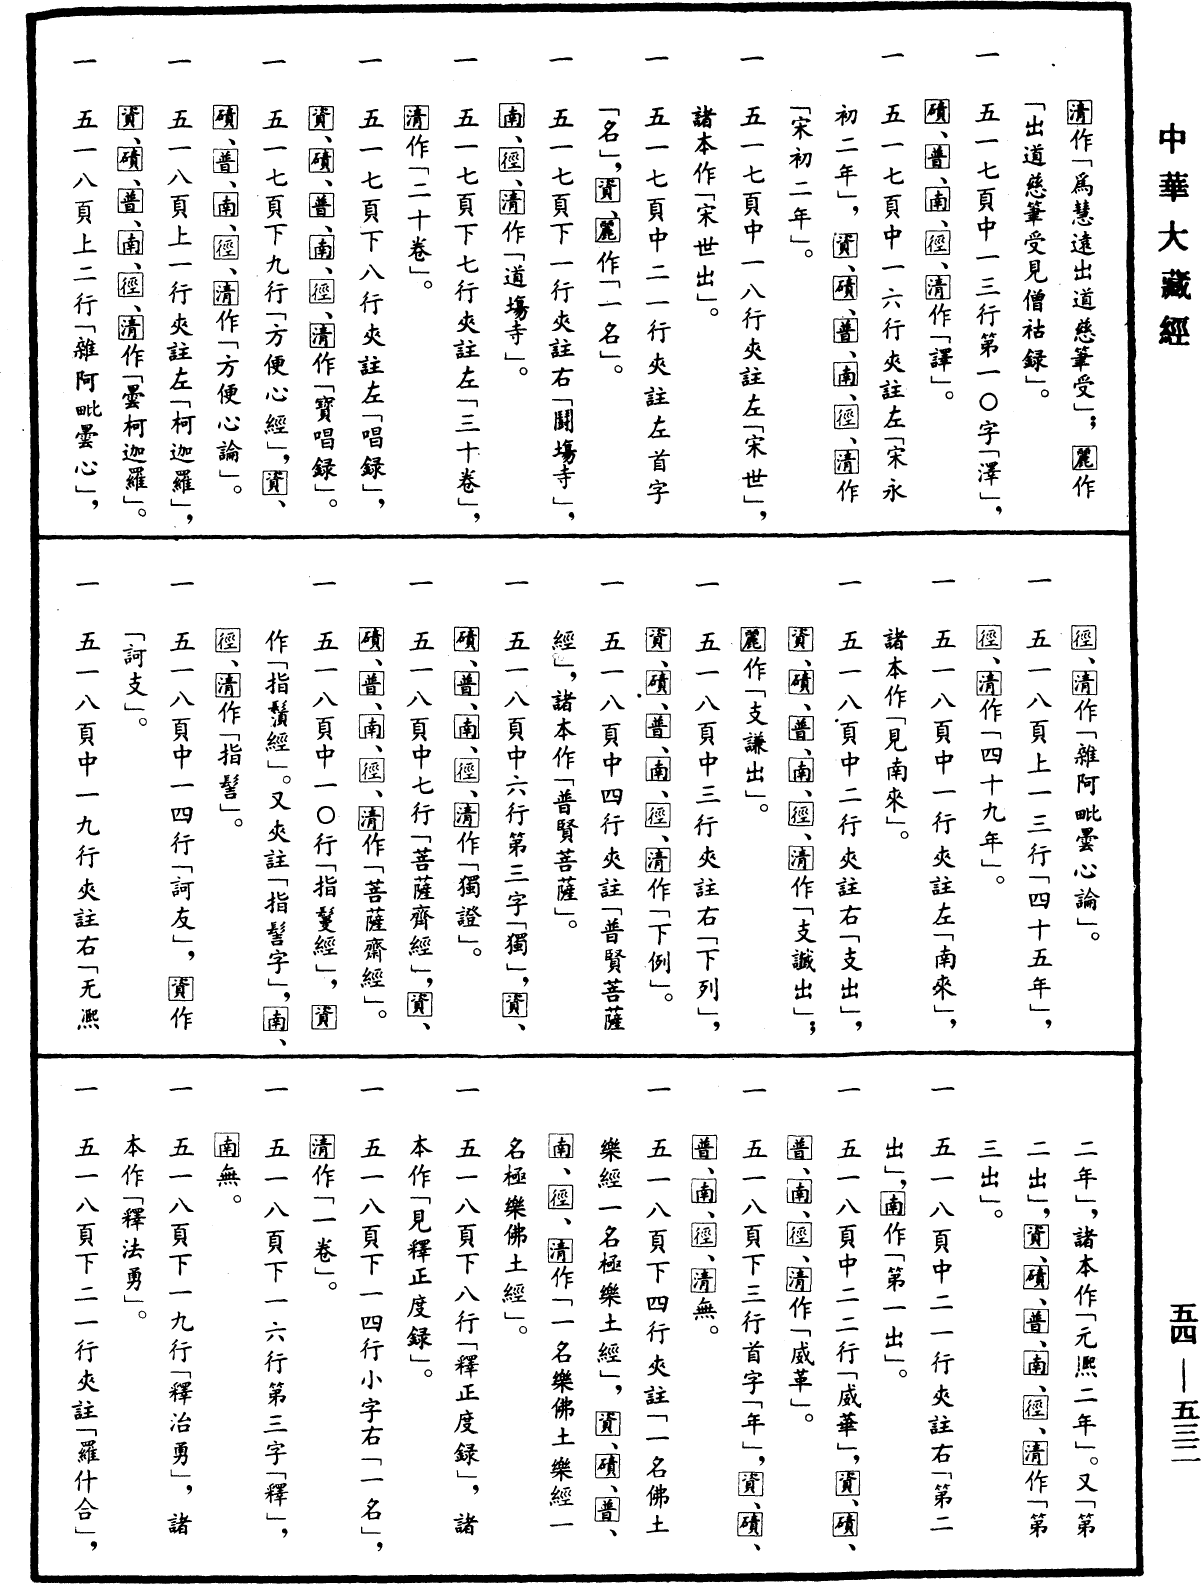 中華大藏經
清作「爲慧遠出道慈筆受」；麗作
「出道慈筆受見僧祐録」。
一　五一七頁中一三行第一〇字「澤」，
磧、普、南、徑、清作「譯」。
一　五一七頁中一六行夾註左「宋永
初二年」，資、磧、普、南、徑、清作
「宋初二年」。
一　五一七頁中一八行夾註左「宋世」，
諸本作「宋世出」。
一　五一七頁中二一行夾註左首字
「名」，資、麗作「一名」。
一　五一七頁下一行夾註右「鬪場寺」，
南、徑、清作「道場寺」。
一　五一七頁下七行夾註左「三十卷」，
清作「二十卷」。
一　五一七頁下八行夾註左「唱録」，
資、磧、普、南、徑、清作「寶唱録」。
一　五一七頁下九行「方便心經」，資、
磧、普、南、徑、清作「方便心論」。
一　五一八頁上一行夾註左「柯迦羅」，
資、磧、普、南、徑、清作「曇柯迦羅」。
一　五一八頁上二行「雜阿毗曇心」，
徑、清作「雜阿毗曇心論」。
一　五一八頁上一三行「四十五年」，
徑、清作「四十九年」。
一　五一八頁中一行夾註左「南來」，
諸本作「見南來」。
一　五一八頁中二行夾註右「支出」，
資、磧、普、南、徑、清作「支誠出」；
麗作「支謙出」。
一　五一八頁中三行夾註右「下列」，
資、磧、普、南、徑、清作「下例」。
一　五一八頁中四行夾註「普賢菩薩
經」，諸本作「普賢菩薩」。
一　五一八頁中六行第三字「獨」，資、
磧、普、南、徑、清作「獨證」。
一　五一八頁中七行「菩薩齊經」，資、
磧、普、南、徑、清作「菩薩齋經」。
一　五一八頁中一〇行「指鬘經」，資
作「指鬚經」。又夾註「指髻字」，南、
徑、清作「指髻」。
一　五一八頁中一四行「訶友」，資作
「訶支」。
一　五一八頁中一九行夾註右「无熙
二年」，諸本作「元熙二年」。又「第
二出」，資、磧、普、南、徑、清作「第
三出」。
一　五一八頁中二一行夾註右「第二
出」，南作「第一出」。
一　五一八頁中二二行「威華」，資、磧、
普、南、徑、清作「威革」。
一　五一八頁下三行首字「年」，資、磧、
普、南、徑、清無。
一　五一八頁下四行夾註「一名佛土
樂經一名極樂土經」，資、磧、普、
南、徑、清作「一名樂佛土樂經一
名極樂佛土經」。
一　五一八頁下八行「釋正度録」，諸
本作「見釋正度録」。
一　五一八頁下一四行小字右「一名」，
清作「一卷」。
一　五一八頁下一六行第三字「釋」，
南無。
一　五一八頁下一九行「釋治勇」，諸
本作「釋法勇」。
一　五一八頁下二一行夾註「羅什合」，
五四—五三二